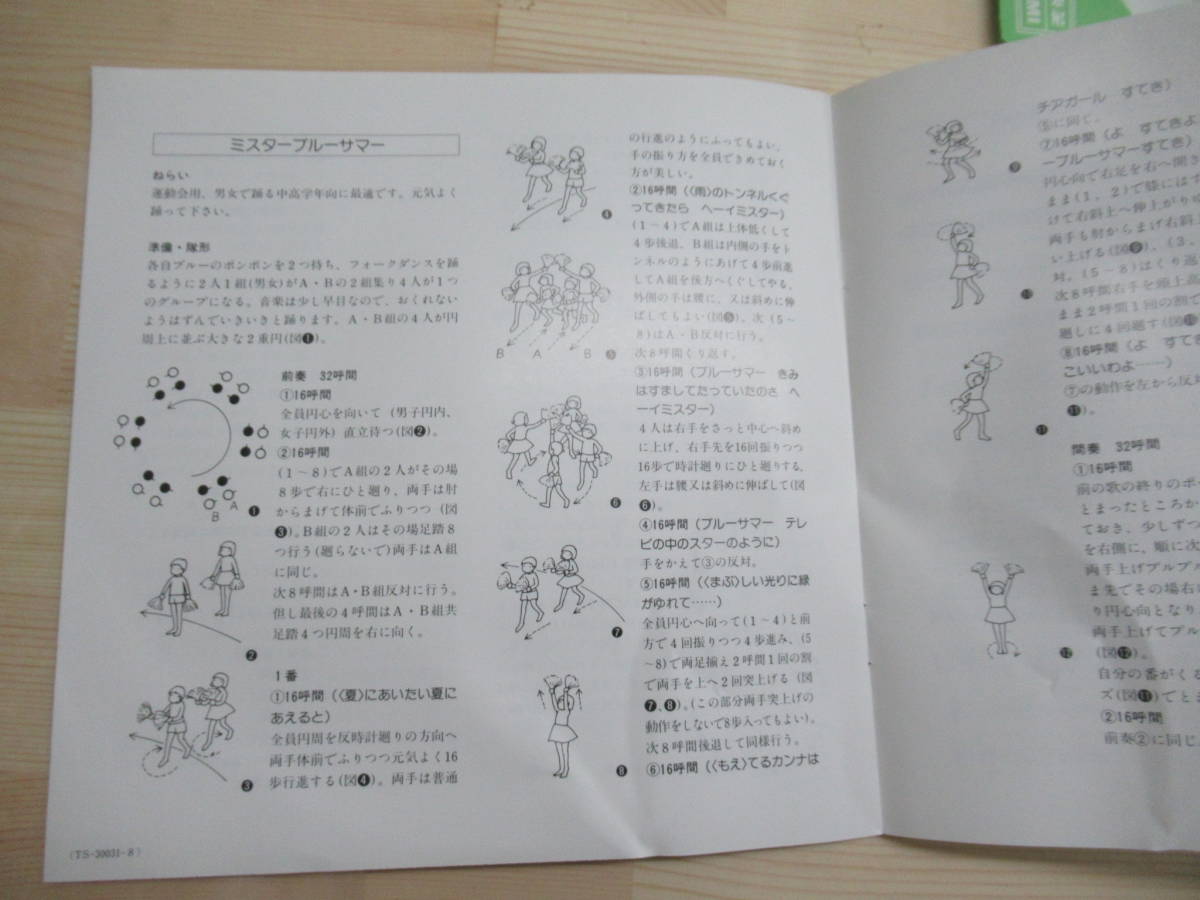 ミスターブルーサマー
ねらい
運動会用、男女で踊る中高学年向に最適です。元気よく
踊って下さい。
準備・隊形
各自ブルーのポンポンを2つ持ち、フォークダンスを踊
るように2人1組(男女)がA・Bの2組集り4人が1つ
のグループになる。音楽は少し早目なので、おくれない
ようはずんでいきいきと踊ります。A・B組の4人が円
周上に並ぶ大きな2重円(図❶)。
A
B
❶
❷
❸
前奏 32呼間
①16呼間
全員円心を向いて(男子円内、
女子円外)直立待つ(図❷)。
②16呼間
(1~8)でA組の2人がその場
8歩で右にひと廻り、両手は肘
からまげて体前でふりつつ(図
❸)。B組の2人はその場足踏8
つ行う(廻らないで)両手はA組
に同じ。
次8呼間はA・B組反対に行う。
但し最後の4呼間はA・B組共
足踏4つ円周を右に向く。
1番
①16呼間(〈夏〉にあいたい夏に
あえると)
全員円周を反時計廻りの方向へ
両手体前でふりつつ元気よく16
歩行進する(図❹)。両手は普通
(TS-30031-8)
❹
B A B
❺
❻
❼
❽
の行進のようにふってもよい。
手の振り方を全員できめておく
方が美しい。
②16呼間(〈雨〉のトンネルくぐ
ってきたら ヘーイミスター)
(1~4)でA組は上体低くして
4歩後退、B組は内側の手をト
ンネルのようにあげて4歩前進
してA組を後方へくぐしてやる。
外側の手は腰に、又は斜めに伸
ばしてもよい(図❺)。次(5~
8)はA・B反対に行う。
次8呼間くり返す。
③16呼間(ブルーサマー きみ
はすましてたっていたのさ ヘ
ーイミスター)
4人は右手をさっと中心へ斜め
に上げ、右手先を16回振りつつ
16歩で時計廻りにひと廻りする。
左手は腰又は斜めに伸ばして(図
❻)。
④16呼間(ブルーサマー テレ
ビの中のスターのように)
手をかえて③の反対。
⑤16呼間(〈まぶ〉しい光りに緑
がゆれて……)
全員円心へ向って(1~4)と前
方で4回振りつつ4歩進み、(5
~8)で両足揃え2呼間1回の割
で両手を上へ2回突上げる(図
❼、❽)。(この部分両手突上げの
動作をしないで8歩入ってもよい)。
次8呼間後退して同様行う。
⑥16呼間(〈もえ〉てるカンナは
❾
❿
⓫
⓬
チアガール すてき)
⑤に同じ。
⑦16呼間(よ すてきよ
ーブルーサマーすてき)
円心向で右足を右へ開き
まま(1、2)で膝にはず
けて右斜上へ伸上がり
両手も肘からまげ右斜
い上げる(図❾)、(3、
対。(5~8)はくり返
次8呼間右手を頭上
まま2呼間1回の割で
廻しに4回廻す(図❿
⑧16呼間(よ すてき
こいいわよ……)
⑦の動作を左から反対
⓫)。
間奏 32呼間
①16呼間
前の歌の終りのポー
とまったところか
ておき、少しずつ
を右側に、順に次
両手上げブルブル
ま先でその場右
り円心向となり
両手上げてブル
(図⓬)。
自分の番がくる
ズ(図⓫)でとま
②16呼間
前奏②に同じ